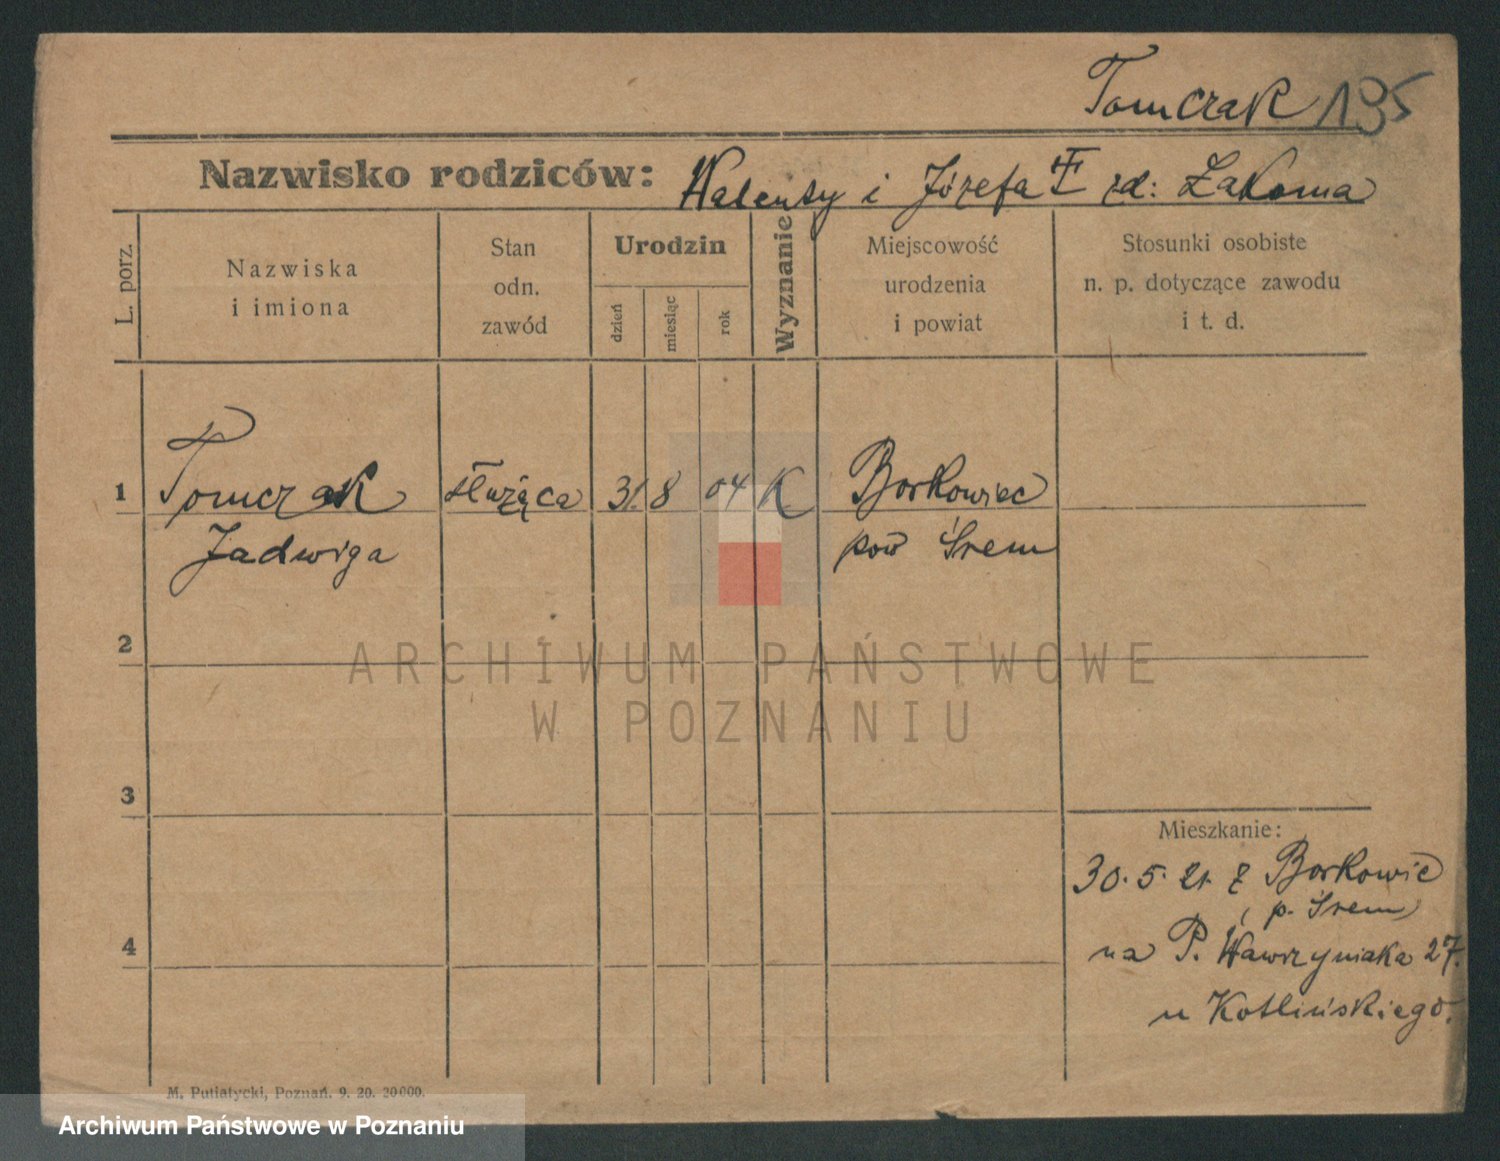 Tomczak 195
Nazwisko rodziców: Walenty i Józefa zd: Łakoma
L. porz.
Nazwiska
i imiona
Stan
odn.
zawód
Urodzin
dzień
miesiąc
rok
Wyznanie
Miejscowość
urodzenia
i powiat
Stosunki osobiste
n. p. dotyczące zawodu
i t. d.
1 Tomczak służąca 31. 8 04 K. Borkowiec
Jadwiga pow Śrem
2
ARCHIWUM PAŃSTWOWE
W POZNANIU
3
Mieszkanie:
30. 5. 21. z Borkowic
p. Śrem
4
na P. Wawrzyniaka 27.
u Kotlińskiego.
M. Putiatycki, Poznań. 9. 20. 20000.
Archiwum Państwowe w Poznaniu